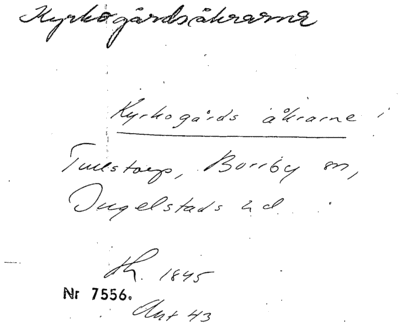 Kyrkogårdsåkrarna
Kyrkogårdsåkrarne i
Tulstorp, Borrby sn,
Ingelstads hd.
Sk. 1845
Nr 7556.
Akt 43